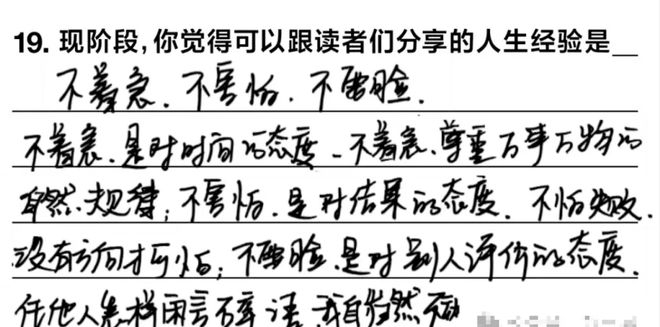 19. 现阶段,你觉得可以跟读者们分享的人生经验是__
不着急、不害怕、不要脸.
不着急、是对时间的态度、不着急、尊重万事万物的
自然规律;不害怕、是对结果的态度、不怕失败、
没有方向才可怕;不要脸、是对别人评价的态度.
任他人怎样闲言碎语、我自岿然不动